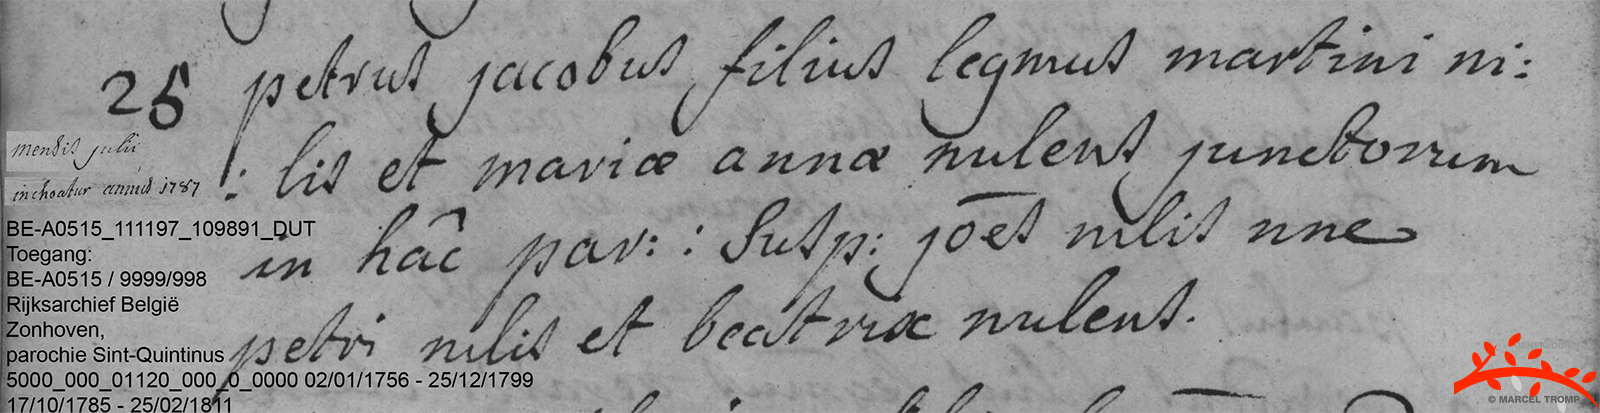 25 petrus jacobus filius legmus martini ni:
: lis et mariæ annæ nulens junctorum
in hâc par: : Susp: jōes nilis nne
petri nilis et beatrix nulens.
mensis julii
inchoatur annus 1787
BE-A0515_111197_109891_DUT
Toegang:
BE-A0515 / 9999/998
Rijksarchief België
Zonhoven,
parochie Sint-Quintinus
5000_000_01120_000_0_0000 02/01/1756 - 25/12/1799
17/10/1785 - 25/02/1811
© MARCEL TROMP